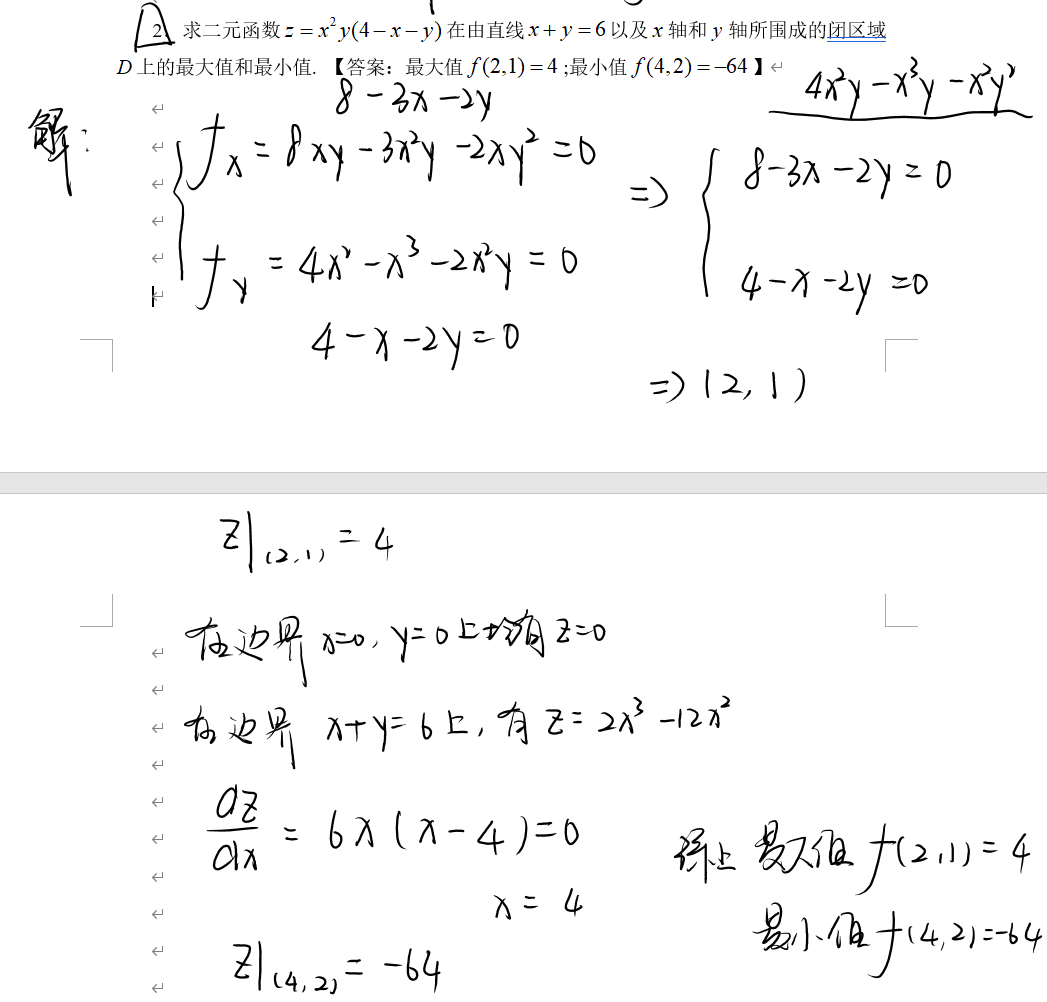 2. 求二元函数 z = x²y(4-x-y) 在由直线 x+y=6 以及 x 轴和 y 轴所围成的闭区域
D 上的最大值和最小值. 【答案：最大值 f(2,1)=4 ;最小值 f(4,2)=-64 】
4x²y-x³y-x²y²
8-3x-2y
解：
f_x = 8xy-3x²y-2xy²=0
=> 8-3x-2y=0
f_y = 4x²-x³-2x²y=0
4-x-2y=0
4-x-2y=0
=> (2,1)
z|(2,1) = 4
在边界 x=0, y=0 上均有 z=0
在边界 x+y=6上, 有 z=2x³-12x²
dz/dx = 6x(x-4)=0
x=4
综上 最大值 f(2,1)=4
最小值 f(4,2)=-64
z|(4,2) = -64